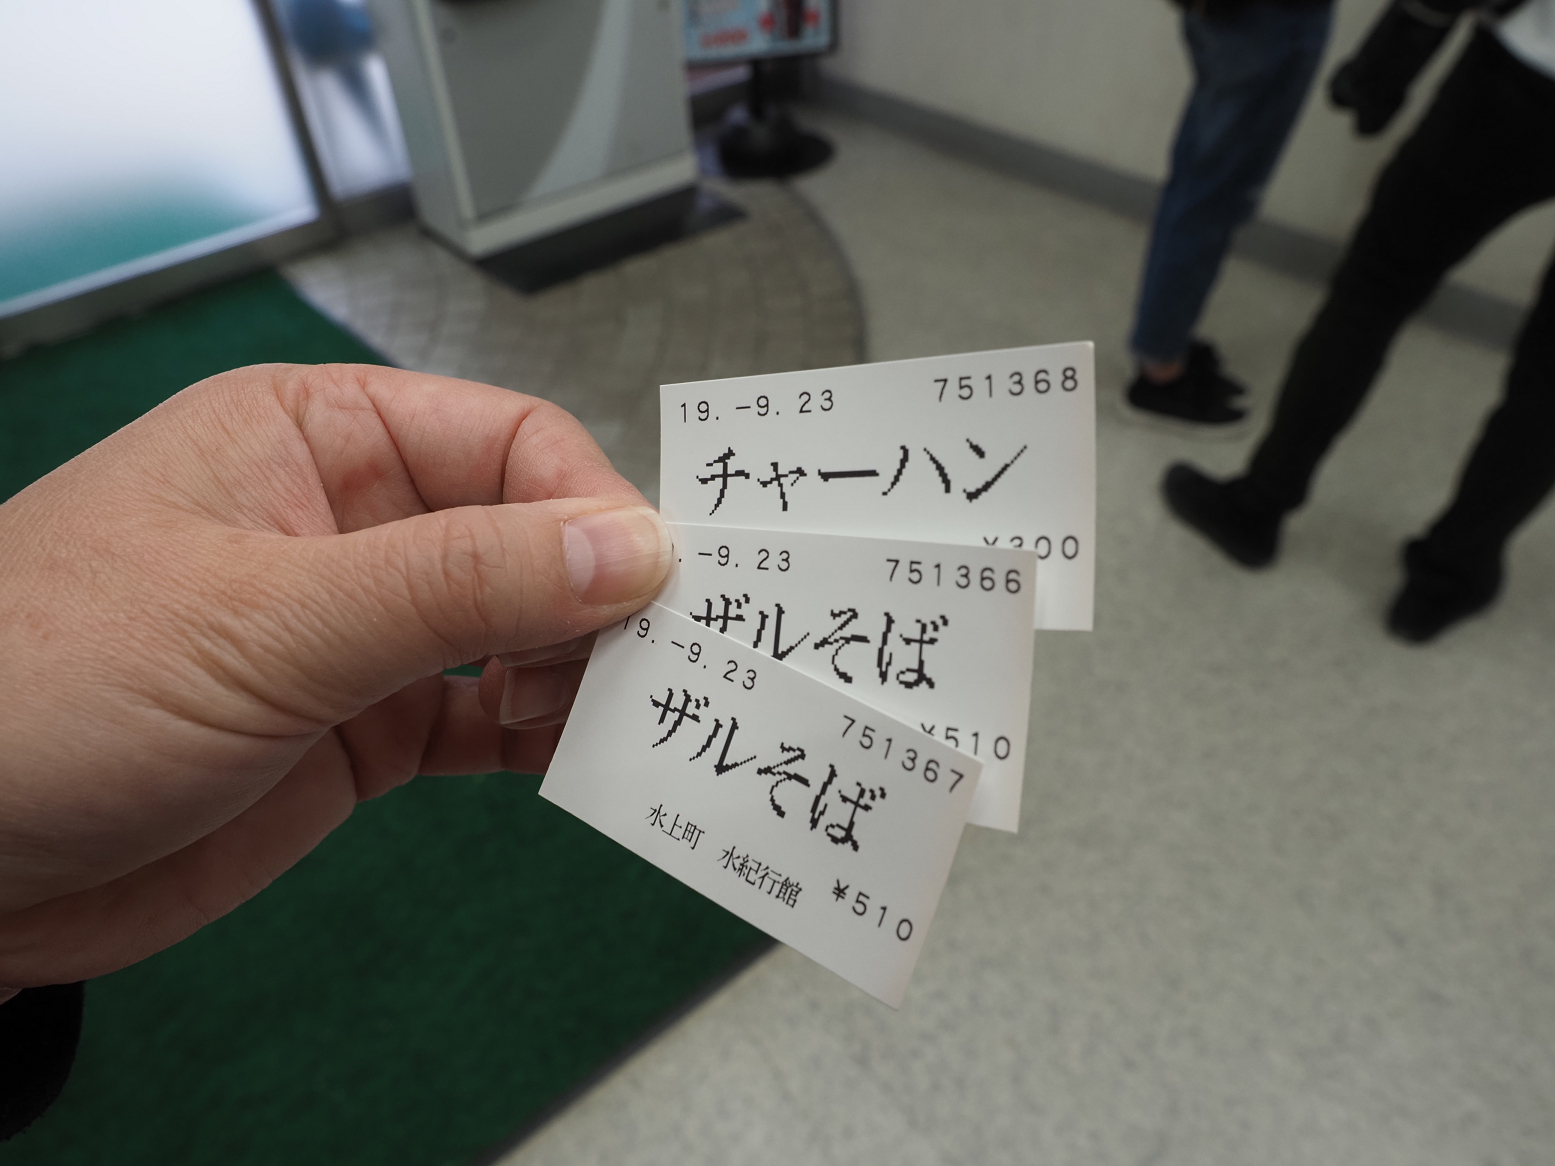 19.-9.23 751368
チャーハン
¥300
.-9.23 751366
ザルそば
¥510
19.-9.23 751367
ザルそば
水上町 水紀行館 ¥510